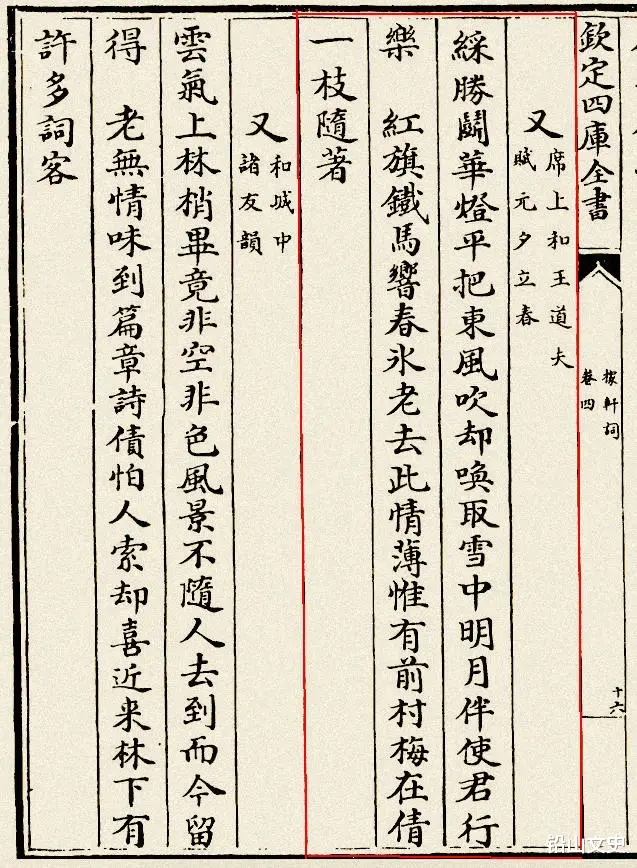 欽定四庫全書
稼軒詞
卷四
十六
又
席上和王道夫
賦元夕立春
綵勝鬭華燈平把東風吹却喚取雪中明月伴使君行
樂 紅旗鐵馬響春氷老去此情薄惟有前村梅在倩
一枝隨著
又
和城中
諸友韻
雲氣上林梢畢竟非空非色風景不隨人去到而今留
得 老無情味到篇章詩債怕人索却喜近来林下有
許多詞客
铅山文史